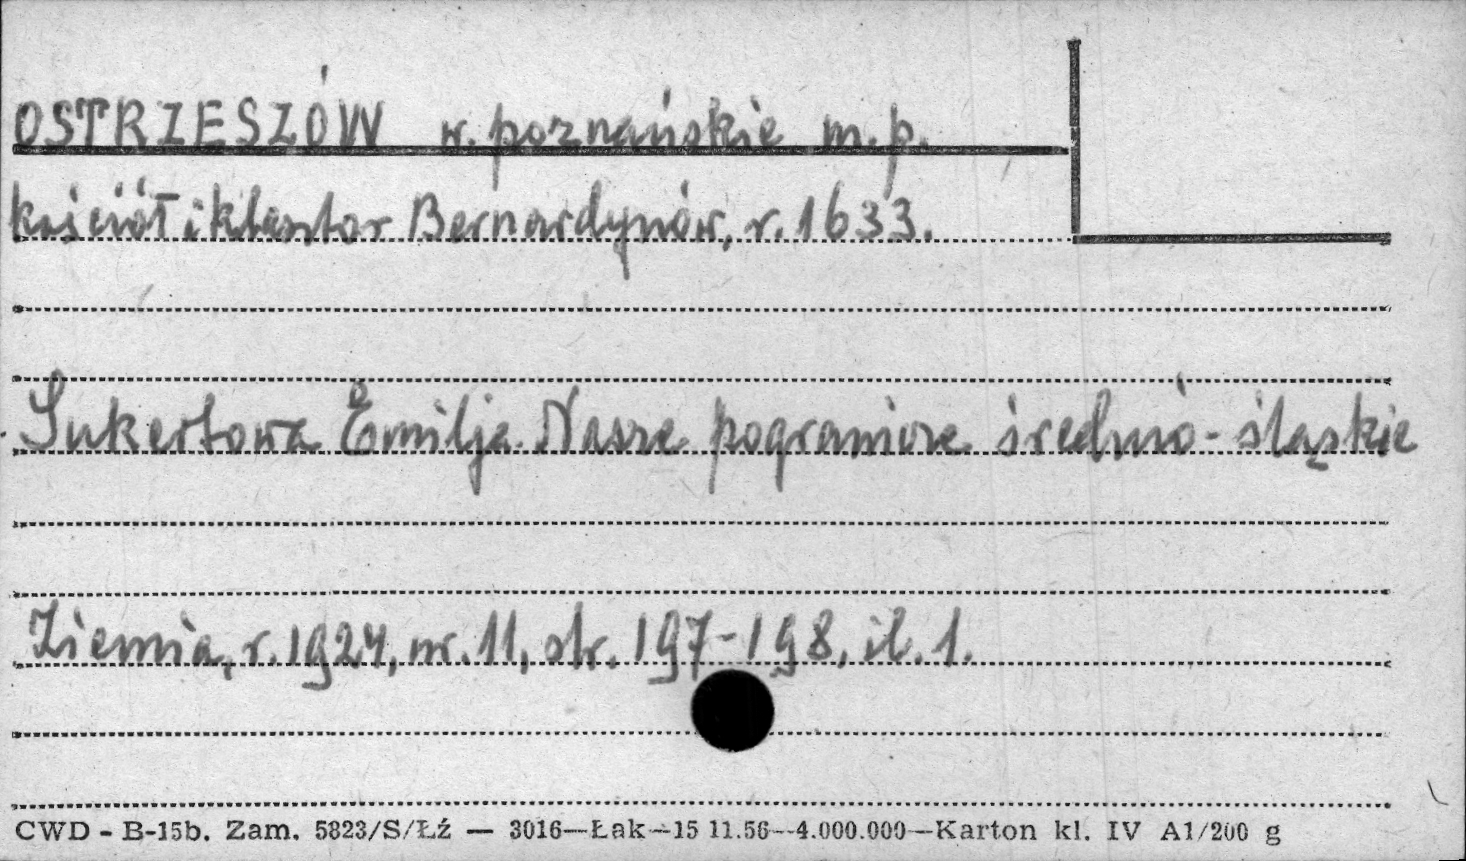 OSTRZESZÓW w. poznańskie m. p.
kościół i klasztor Bernardynów, r. 1633.
Sukertowa Emilja. Nasze pogranicze średnio-śląskie
Ziemia, r. 1924, nr. 11, str. 197-198, il. 1.
CWD - B-15b. Zam. 5823/S/Łź — 3016—Łak—15 11.56--4.000.000—Karton kl. IV A1/200 g